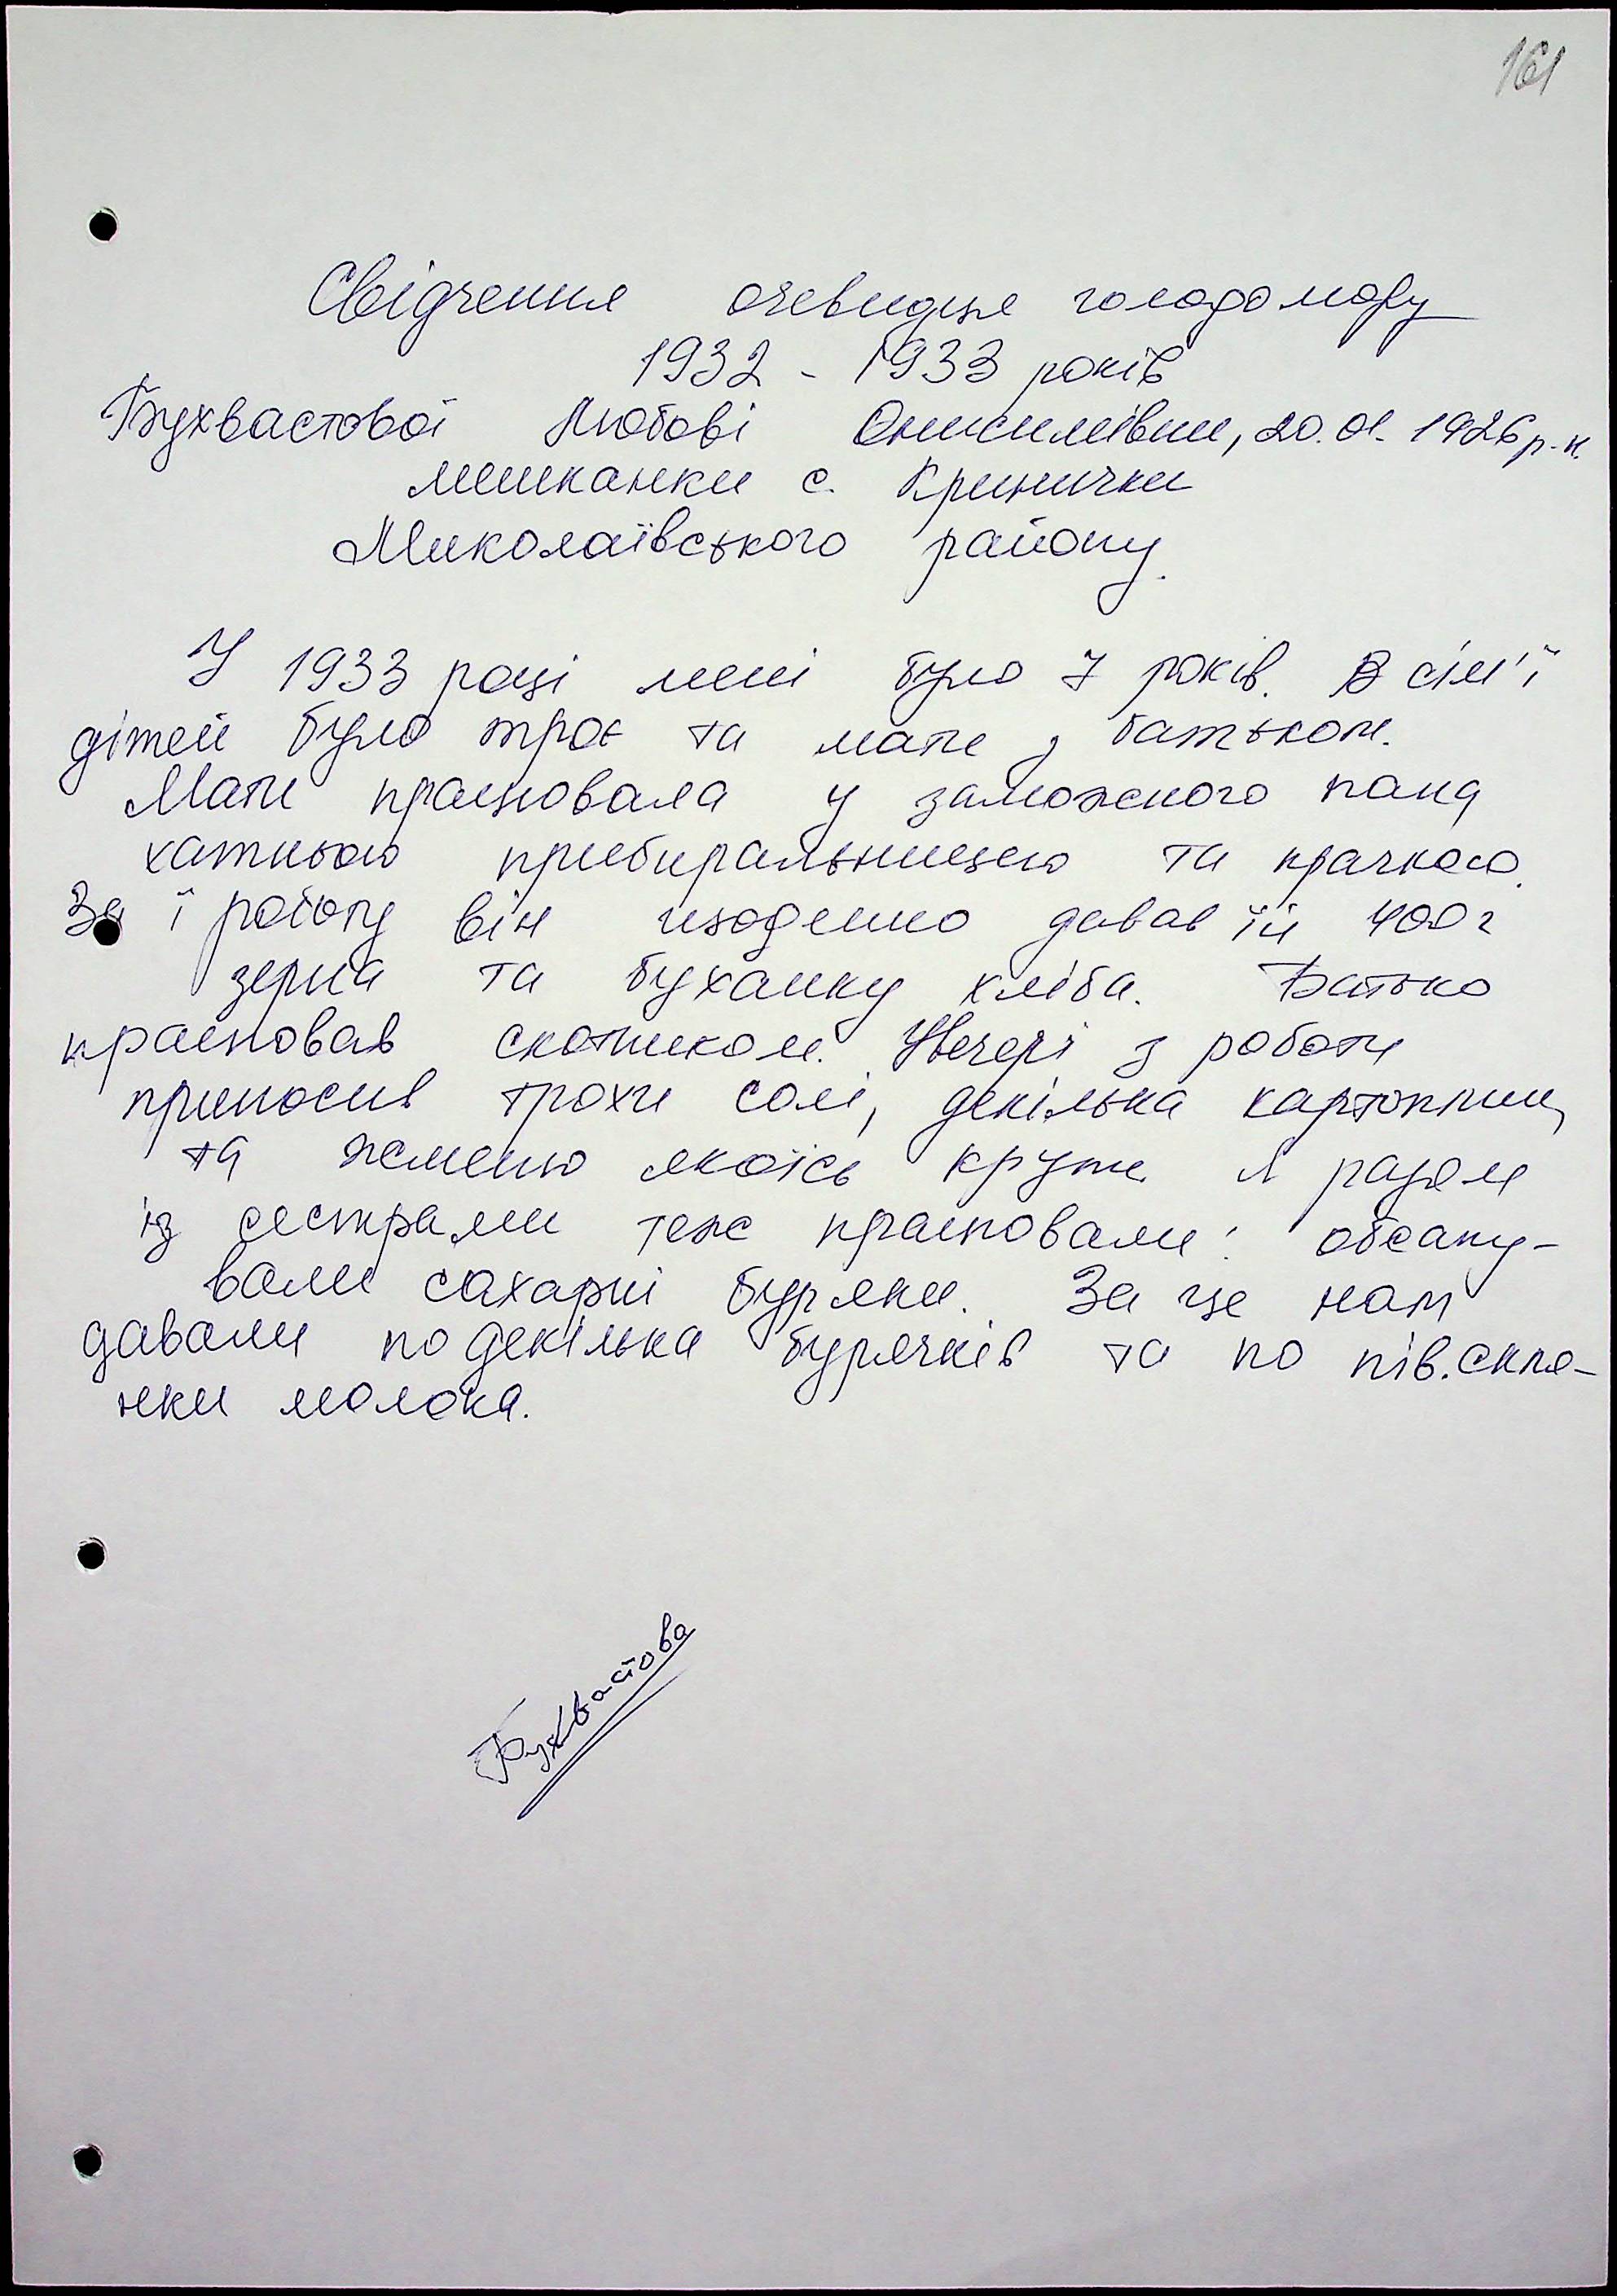 161
Свідчення очевидця голодомору
1932 - 1933 років
Бухвастової Любові Онисимівни, 20.01.1926 р.н.
мешканки с. Кринички
Миколаївського району.
У 1933 році мені було 7 років. В сім'ї
дітей було троє та мати з батьком.
Мати працювала у заможного пана
хатньою прибиральницею та прачкою.
За ї роботу він щоденно давав їй 400 г
зерна та буханку хліба. Батько
працював скотником. Увечері з роботи
приносив трохи солі, декілька картоплин,
та жменю якоїсь крупи. Я разом
із сестрами теж працювали: обсапу-
вали сахарні буряки. За це нам
давали по декілька бурячків та по пів.скля-
нки молока.
Бухвастова